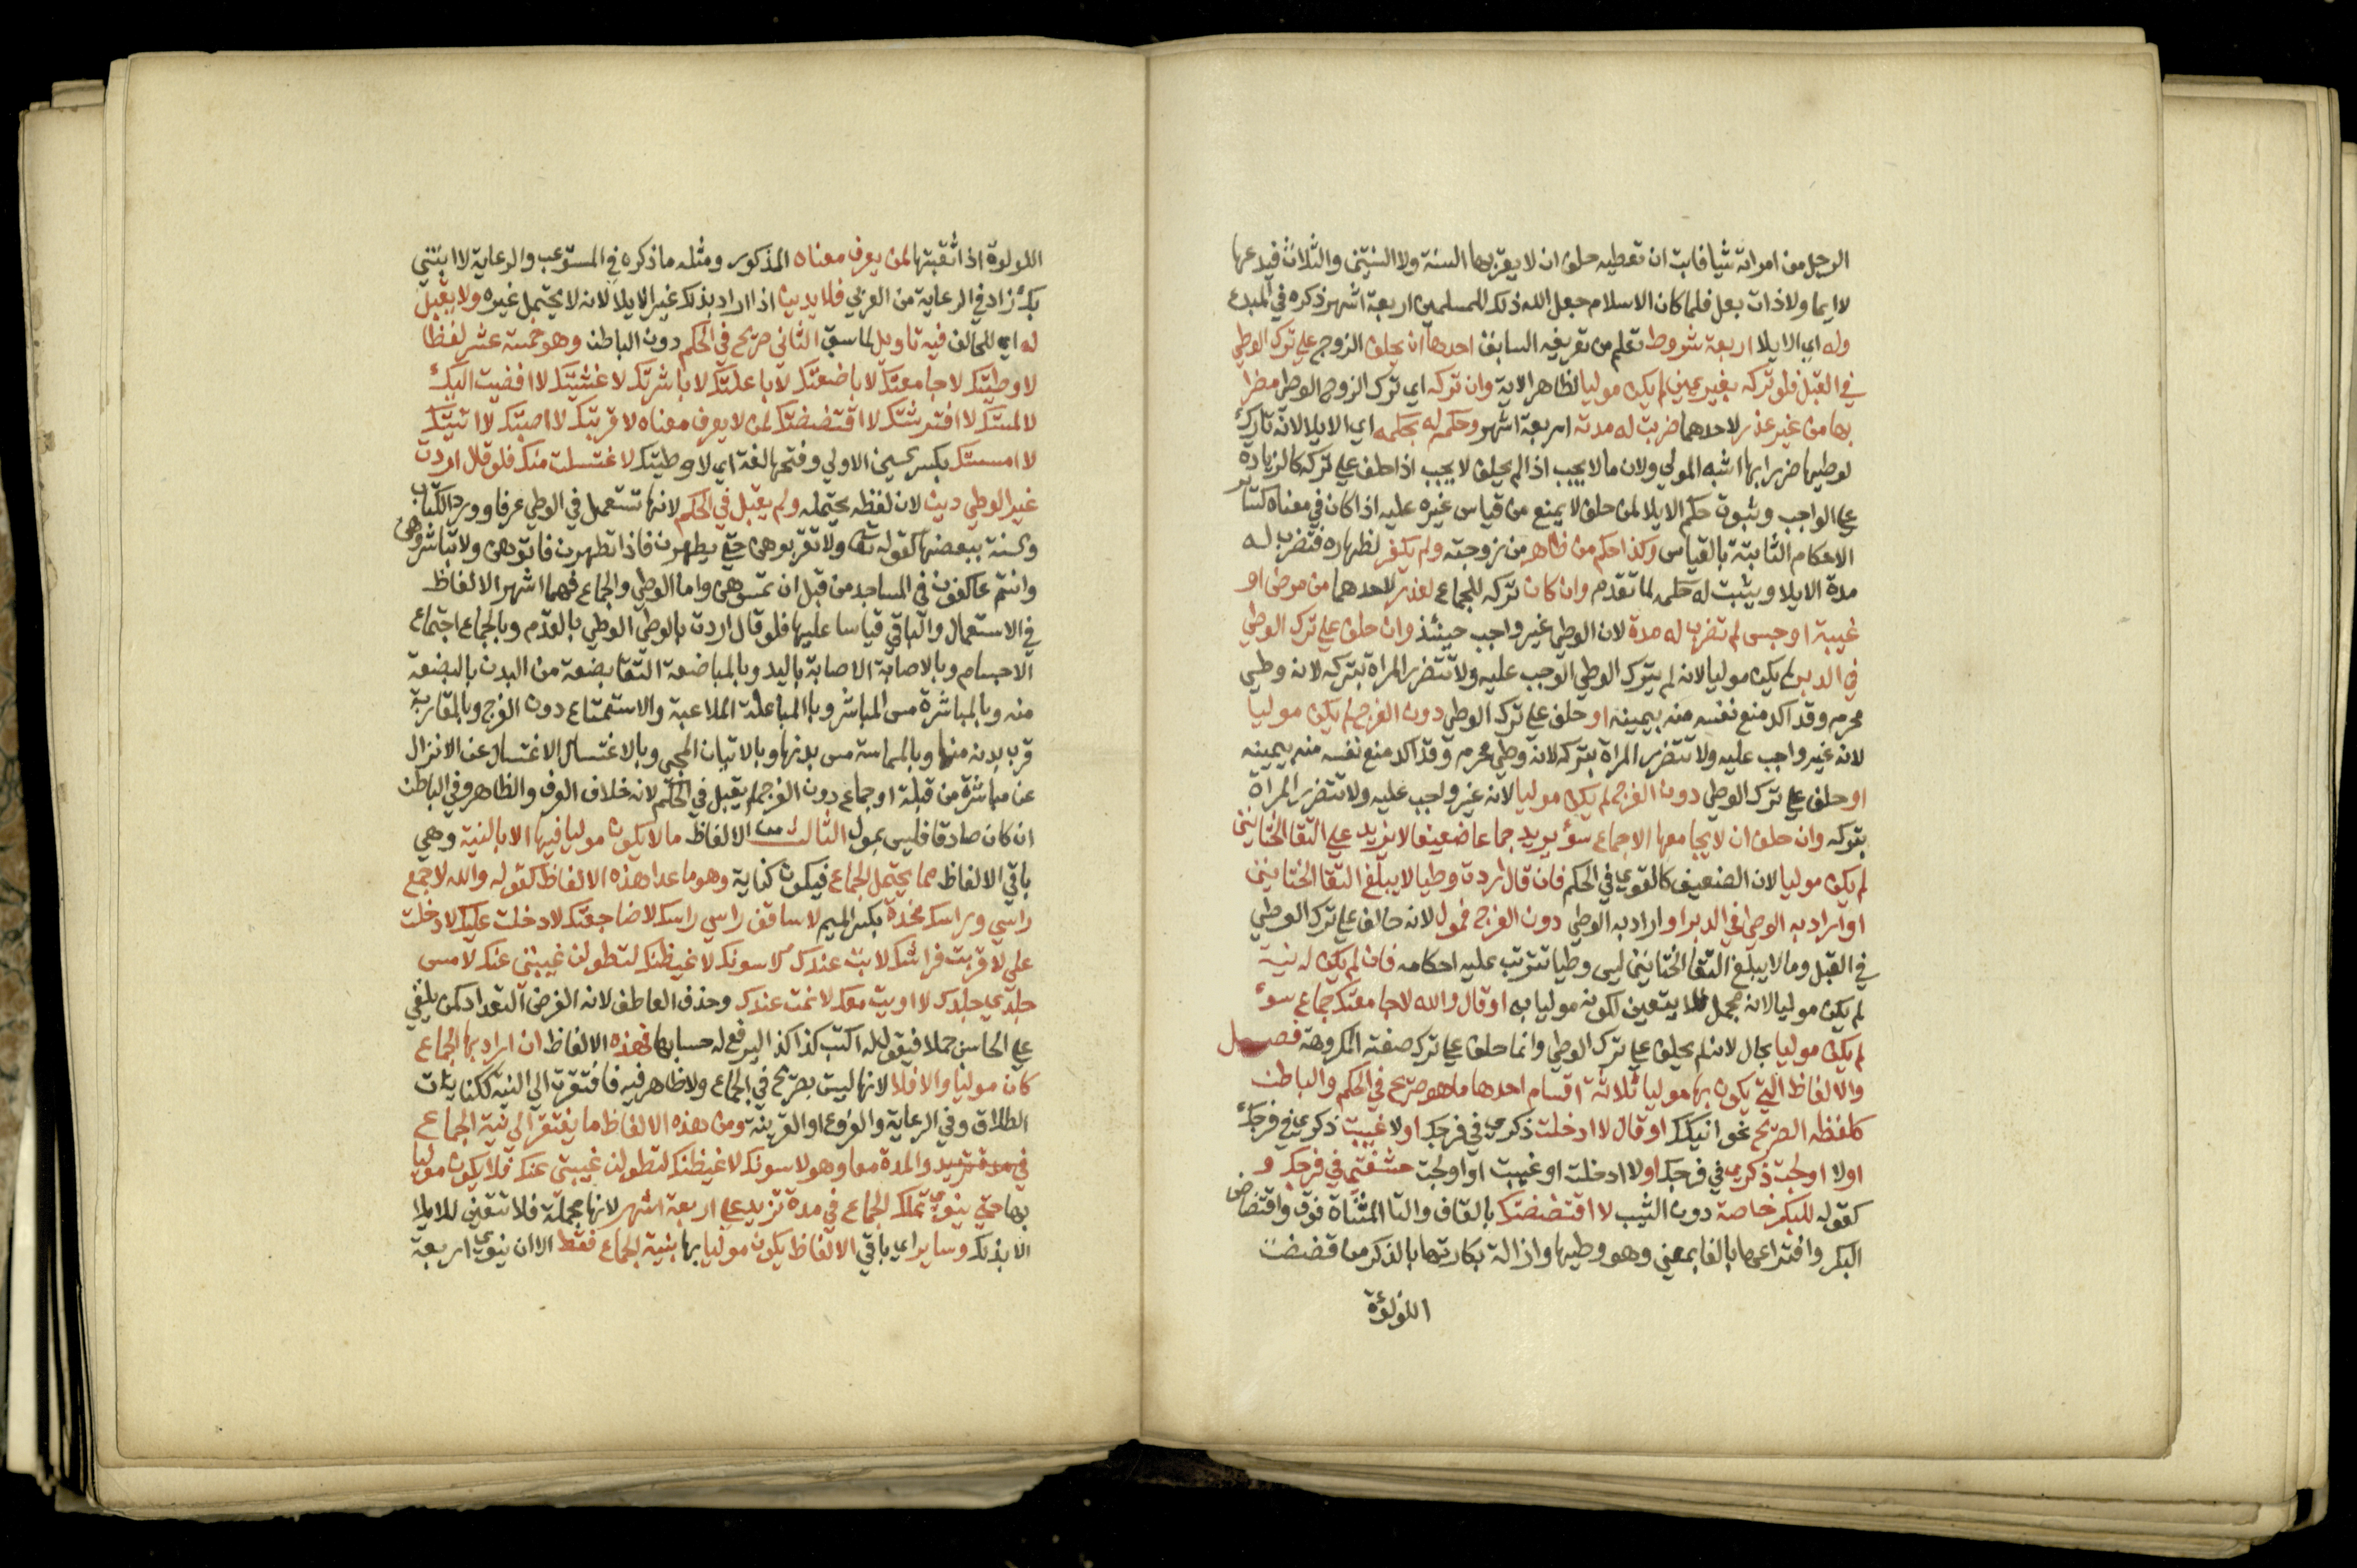 الرجل من امراته شيا فابت ان تعطيه حلف ان لا يقربها السنة ولا السنتين والثلاث فيدعها
لا ايما ولا ذات بعل فلما كان الاسلام جعل الله ذلك للمسلمين اربعة اشهر ذكره في المبدع
وله اي الايلا اربعة شروط تعلم من تعريفه السابق احدها ان يحلف الزوج علي ترك الوطي
في القبل فلو تركه بغير يمين لم يكن موليا لظاهر الاية وان تركه اي ترك الزوج الوطي مضرا
بها من غير عذر لاحدهما ضربت له مدته اربعة اشهر وحكم له بحكمه اي الايلا لانه تارك
لوطيها ضررا بها اشبه المولي ولان ما لا يجب اذا لم يحلف لا يجب اذا حلف علي تركه كالزيادة
علي الواجب وثبوت حكم الايلا لمن حلف لا يمنع من قياس غيره عليه اذا كان في معناه كساير
الاحكام الثابتة بالقياس وكذا حكم من ظاهر من زوجته ولم يكفر لظهاره فتضرب له
مدة الايلا ويثبت له حكمه لما تقدم وان كان تركه للجماع لعذر لاحدهما من مرض او
غيبة او حبس لم تضرب له مدة لان الوطي غير واجب حينئذ وان حلف علي ترك الوطي
في الدبر لم يكن موليا لانه لم يترك الوطي الوجب عليه ولا تتضرر المراة بتركه لانه وطي
محرم وقد اكد منع نفسه منه بيمينه او حلف علي ترك الوطي دون الفرج لم يكن موليا
لانه غير واجب عليه ولا تتضرر المراة بتركه لانه وطي محرم وقد اكد منع نفسه منه بيمينه
او حلف علي ترك الوطي دون الفرج لم يكن موليا لانه غير واجب عليه ولا تتضرر المراة
بتركه وان حلف ان لا يجامعها الا جماع سوء يريد جماعا ضعيفا لا يزيد علي التقا الختانين
لم يكن موليا لان الضعيف كالقوي في الحكم فان قال اردت وطيا لا يبلغ التقا الختانين
او اراد به الوطي في الدبر او اراد به الوطي دون الفرج فمول لانه حالف علي ترك الوطي
في القبل وما لا يبلغ التقا الختانين ليس وطيا تترتب عليه احكامه فان لم يكن له نية
لم يكن موليا لانه مجمل فلا يتعين لكونه موليا به او قال والله لا جامعتك جماع سوء
لم يكن موليا بحال لانه لم يحلف علي ترك الوطي وانما حلف علي ترك صفته المكروهة فصل
والالفاظ التي يكون بها موليا ثلاثة اقسام احدها ما هو صريح في الحكم والباطن
كلفظه الصريح نحو انيكك او قال لا ادخلت ذكري في فرجك او لا غيبت ذكري في فرجك
او لا اولجت ذكري في فرجك او لا ادخلت او غيبت او اولجت حشفتي في فرجك و
كقوله للبكر خاصة دون الثيب لا اقتضضتك بالقاف والتا المثناة فوق واقتضاض
البكر وافتراعها بالفا بمعني وهو وطيها وازالة بكارتها بالذكر من قضضت
اللؤلؤة
اللولوة اذا ثقبتها لمن يعرف معناه المذكور ومثله ما ذكره في المستوعب والرعاية لا ابتنني
بك زاد في الرعاية من العربي فلا يدين اذا اراد بذلك غير الايلا لانه لا يحتمل غيره ولا يقبل
له اي للحالف فيه تاويل لما سبق الثاني صريح في الحكم دون الباطن وهو خمسة عشر لفظا
لا وطيتك لا جامعتك لا باضعتك لا باعلتك لا باشرتك لا غشيتك لا افضيت اليك
لا لمستك لا افترشتك لا اقتضضتك لمن لا يعرف معناه لا قربتك لا اصبتك لا اتيتك
لا امسستك بكسر السين الاولي وفتحها لغة اي لا وطيتك لا غتسلت منك فلو قال اردت
غير الوطي دين لان لفظه يحتمله ولم يقبل في الحكم لانها تستعمل في الوطي عرفا وورد الكتاب
والسنة ببعضها كقوله تعالى ولا تقربوهن حتي يطهرن فاذا تطهرن فاتوهن ولا تباشروهن
وانتم عاكفون في المساجد من قبل ان تمسوهن واما الوطي والجماع فهما اشهر الالفاظ
في الاستعمال والباقي قياسا عليها فلو قال اردت بالوطي الوطي بالقدم وبالجماع اجتماع
الاجسام وبالاصابة الاصابة باليد وبالمباضعة التقا بضعة من البدن بالبضعة
منه وبالمباشرة مس المباشر وبالمباعلة الملاعبة والاستمتاع دون الفرج وبالمقاربة
قرب بدنه منها وبالمماسة مس بدنها وبالاتيان المجي وبالاغتسال الاغتسال عن الانزال
عن مباشرة من قبلة او جماع دون الفرج لم يقبل في الحكم لانه خلاف العرف والظاهر وفي الباطن
ان كان صادقا فليس بمول الثالث من الالفاظ ما لا يكون موليا فيها الا بالنية وهي
باقي الالفاظ مما يحتمل الجماع فيكون كناية وهو ما عدا هذه الالفاظ كقوله والله لا جمع
راسي وراسك مخدة بكسر الميم لا ساقف راسي راسك لا ضاجعتك لا دخلت عليك لا دخلت
علي لا قربت فراشك لا بت عندك لاسونك لاغيظنك لتطولن غيبتي عنك لا مس
جلدي جلدك لا اويت معك لا نمت عندك وحذف العاطف لانه الغرض التعداد كمن يلقي
علي الحاسن جملا فيقول له اكتب كذا كذا ليرفع له حسابها فهذه الالفاظ ان اراد بها الجماع
كان موليا والا فلا لانها ليست بصريح في الجماع ولا ظاهر فيه فافتقرت الي النية ككنايات
الطلاق وفي الرعاية والفروع او القرينة ومن هذه الالفاظ ما يفتقر الي نية الجماع
والمدة معا وهو لاسونك لاغيظنك لتطولن غيبتي عنك فلا يكون موليا
بها حتي ينوي ترك الجماع في مدة تزيد علي اربعة اشهر لانها مجملة فلا تتعين للايلا
الا بذلك وساير اي باقي الالفاظ يكون موليا بها بنية الجماع فقط الا ان ينوي اربعة